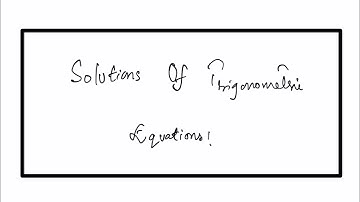 Solutions Of Trigonometric
Equations!